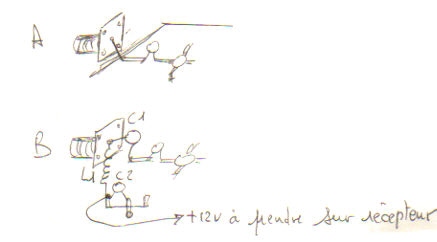 A
C1
B
L1 C2
+12v à prendre sur récepteur